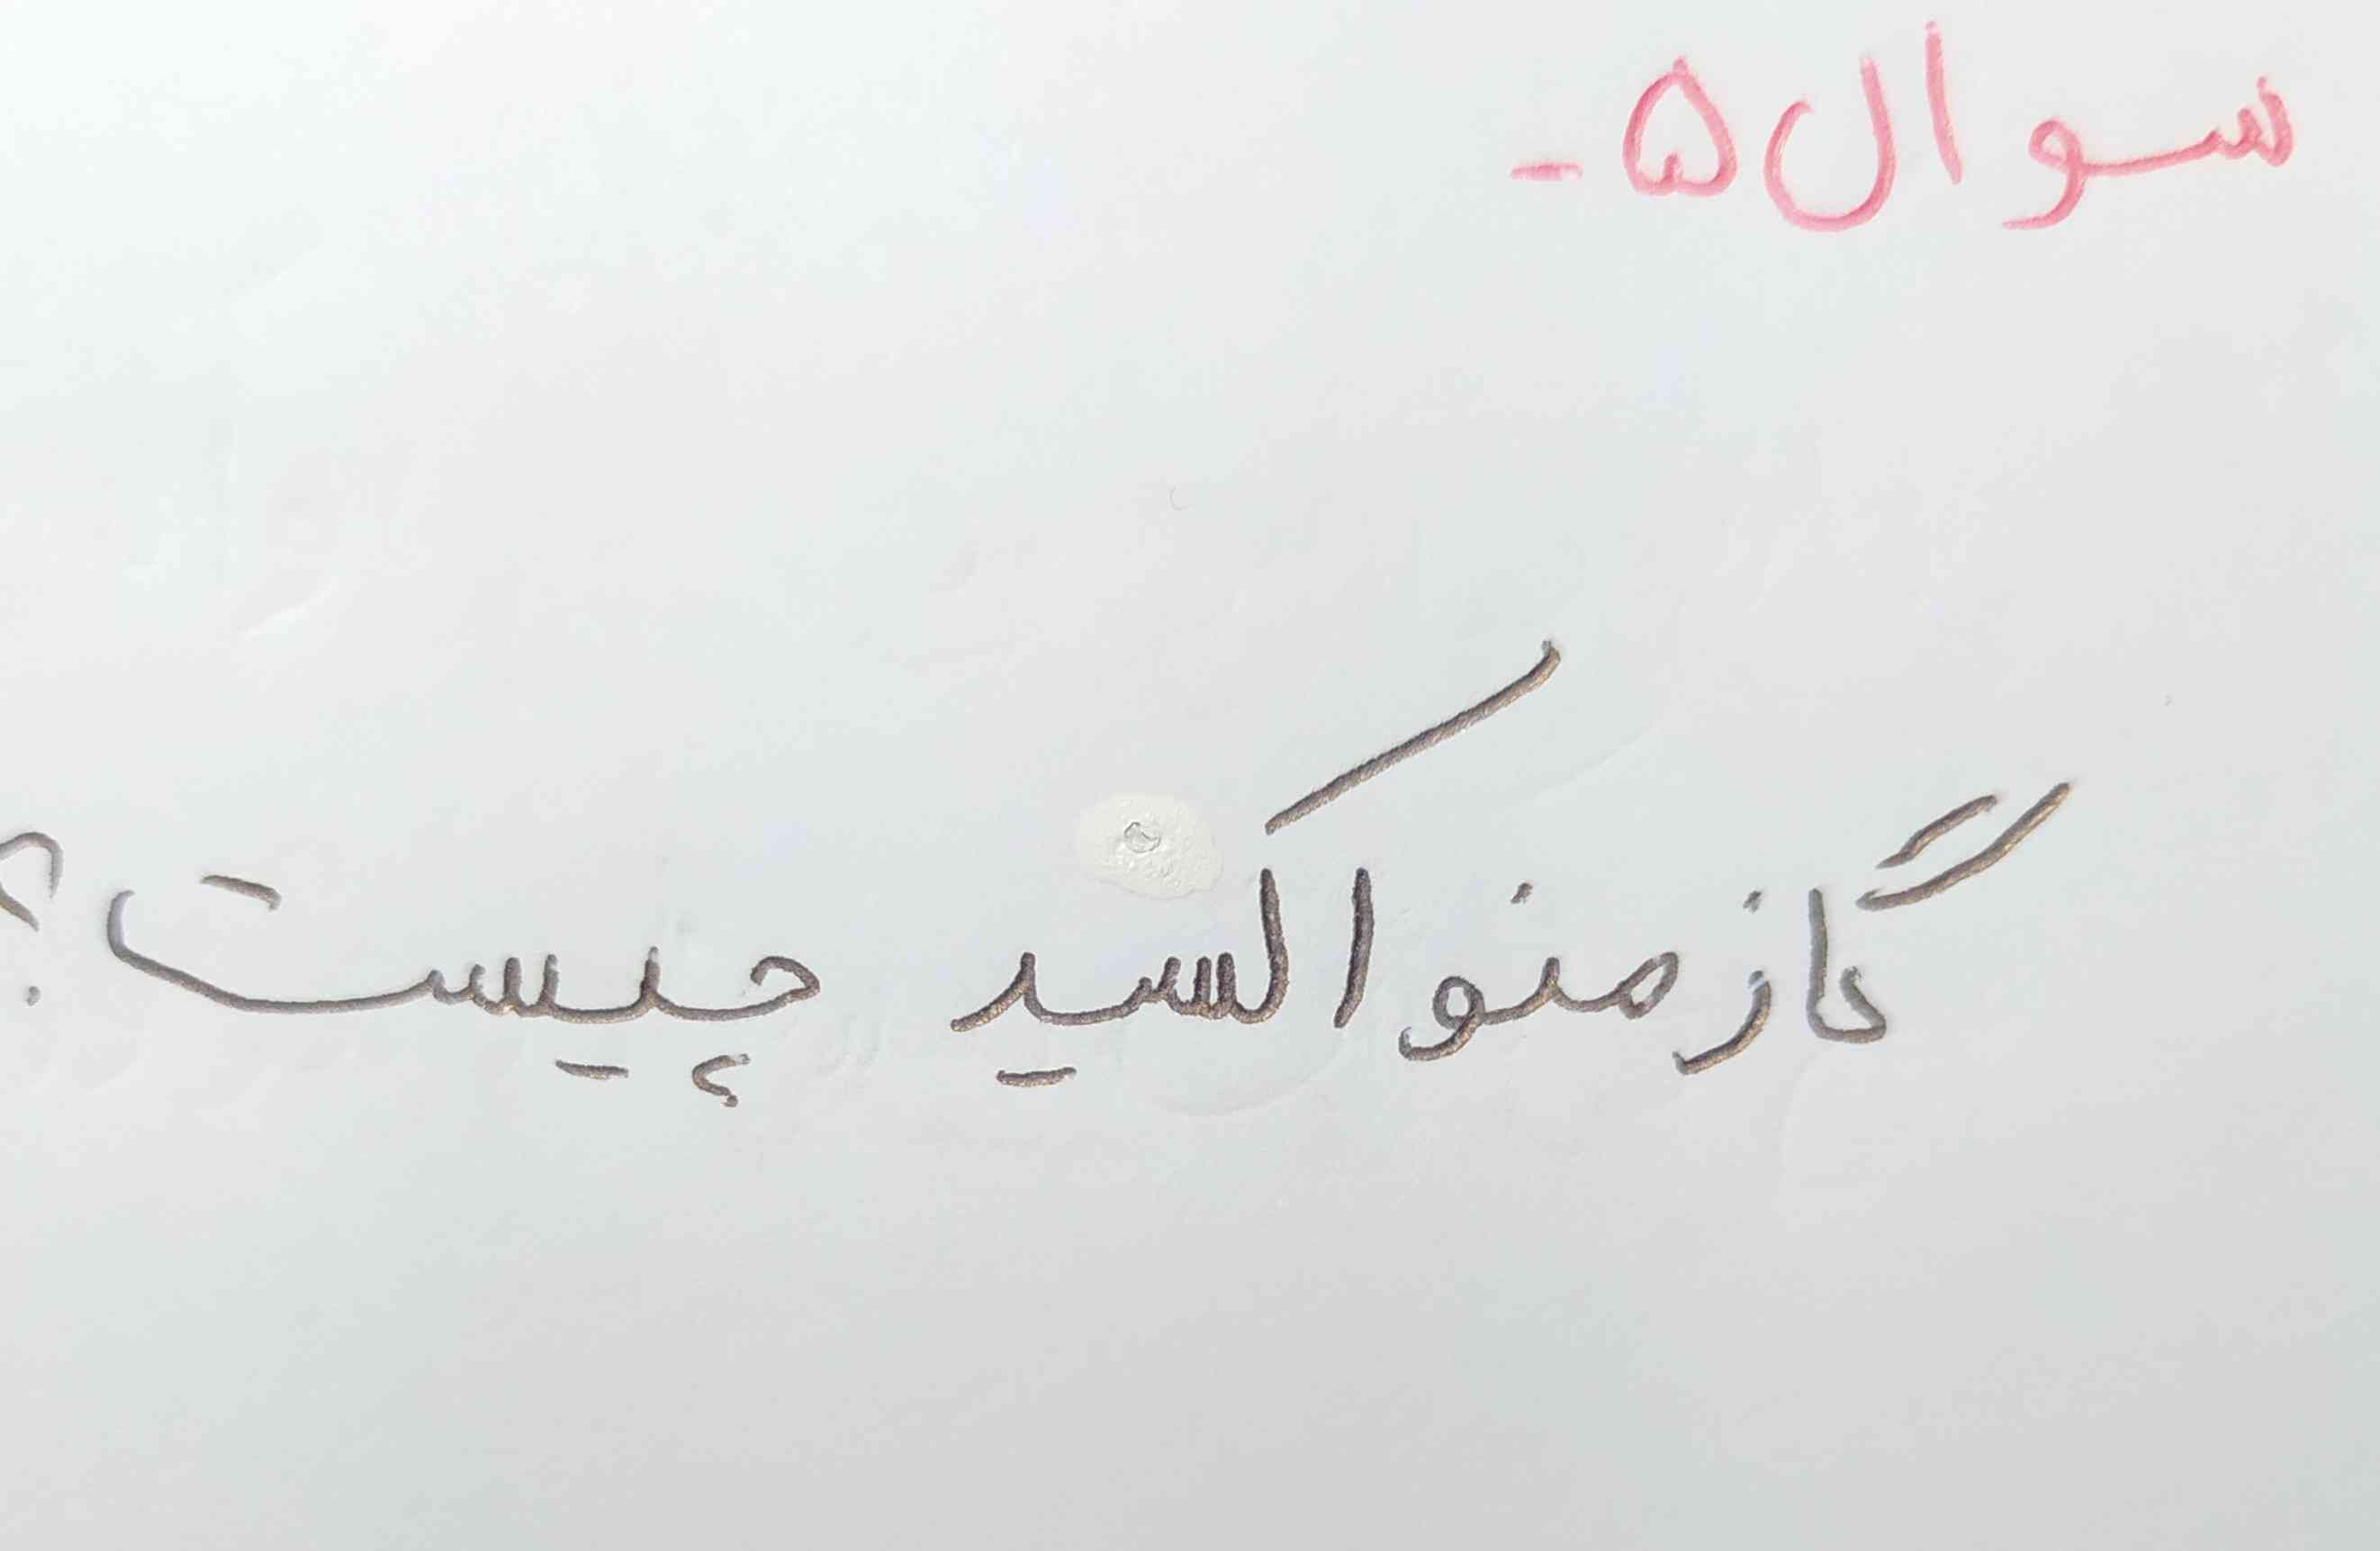 سوال ۵ -
گاز منواکسید چیست؟